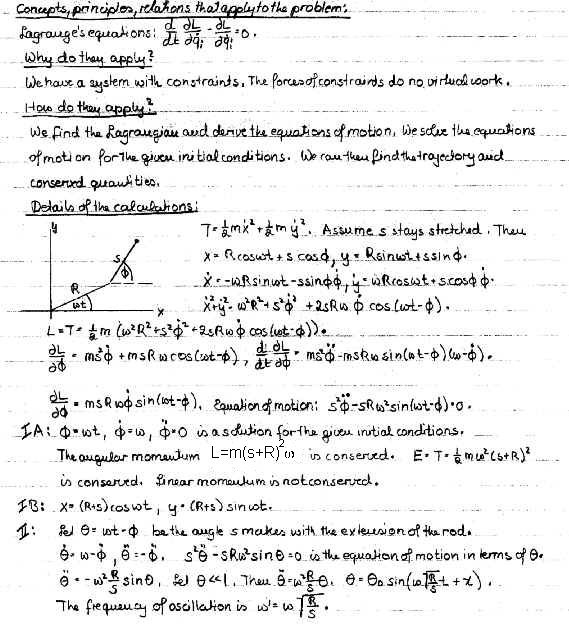 Concepts, principles, relations that apply to the problem:
Lagrange's equations: d/dt ∂L/∂q̇ᵢ - ∂L/∂qᵢ = 0.
Why do they apply?
We have a system with constraints. The forces of constraints do no virtual work.
How do they apply?
We find the Lagrangian and derive the equations of motion. We solve the equations
of motion for the given initial conditions. We can then find the trajectory and
conserved quantities.
Details of the calculations:
y
s
φ
R
ωt
x
T = ½mẋ² + ½mẏ². Assume s stays stretched. Then
x = R cosωt + s cosφ, y = R sinωt + s sinφ.
ẋ = -ωR sinωt - s sinφ φ̇, ẏ = ωR cosωt + s cosφ φ̇.
ẋ² + ẏ² = ω²R² + s²φ̇² + 2sRω φ̇ cos(ωt-φ).
L = T = ½ m (ω²R² + s²φ̇² + 2sRωφ̇ cos(ωt-φ)).
∂L/∂φ̇ = ms²φ̇ + msRω cos(ωt-φ), d/dt ∂L/∂φ̇ = ms²φ̈ - msRω sin(ωt-φ)(ω-φ̇).
∂L/∂φ = msRωφ̇ sin(ωt-φ). Equation of motion: s²φ̈ - sRω² sin(ωt-φ) = 0.
IA: φ = ωt, φ̇ = ω, φ̈ = 0 is a solution for the given initial conditions.
The angular momentum L=m(s+R)²ω is conserved. E = T = ½mω²(s+R)²
is conserved. Linear momentum is not conserved.
IB: x = (R+s) cosωt, y = (R+s) sinωt.
II: Let θ = ωt - φ be the angle s makes with the extension of the rod.
θ̇ = ω - φ̇, θ̈ = -φ̈. s²θ̈ - sRω² sinθ = 0 is the equation of motion in terms of θ.
θ̈ = -ω² R/s sinθ, Let θ << 1. Then θ̈ = -ω² R/s θ. θ = θ₀ sin(ω√(R/s) t + x).
The frequency of oscillation is ω' = ω√(R/s).